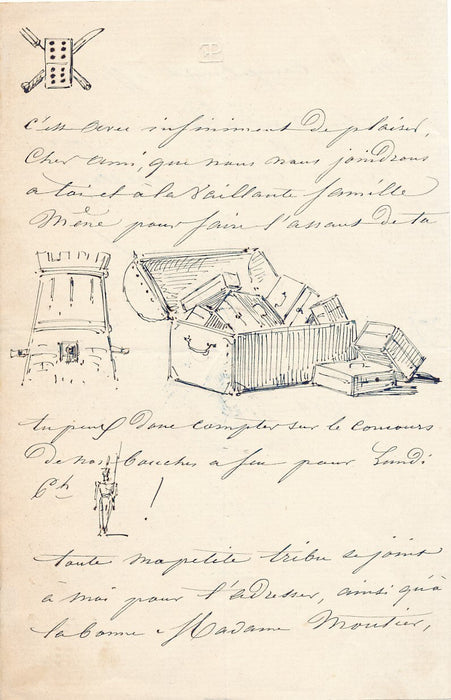 c'est avec infiniment de plaisir,
Cher ami, que nous nous joindrons
a toi et à la vaillante famille
Mène pour faire l'assaut de ta
tu peux donc compter sur le concours
de nos bouches à feu pour Lundi
6h !
toute ma petite tribu se joint
à moi pour t'adresser, ainsi qu'à
la bonne Madame Moutier,